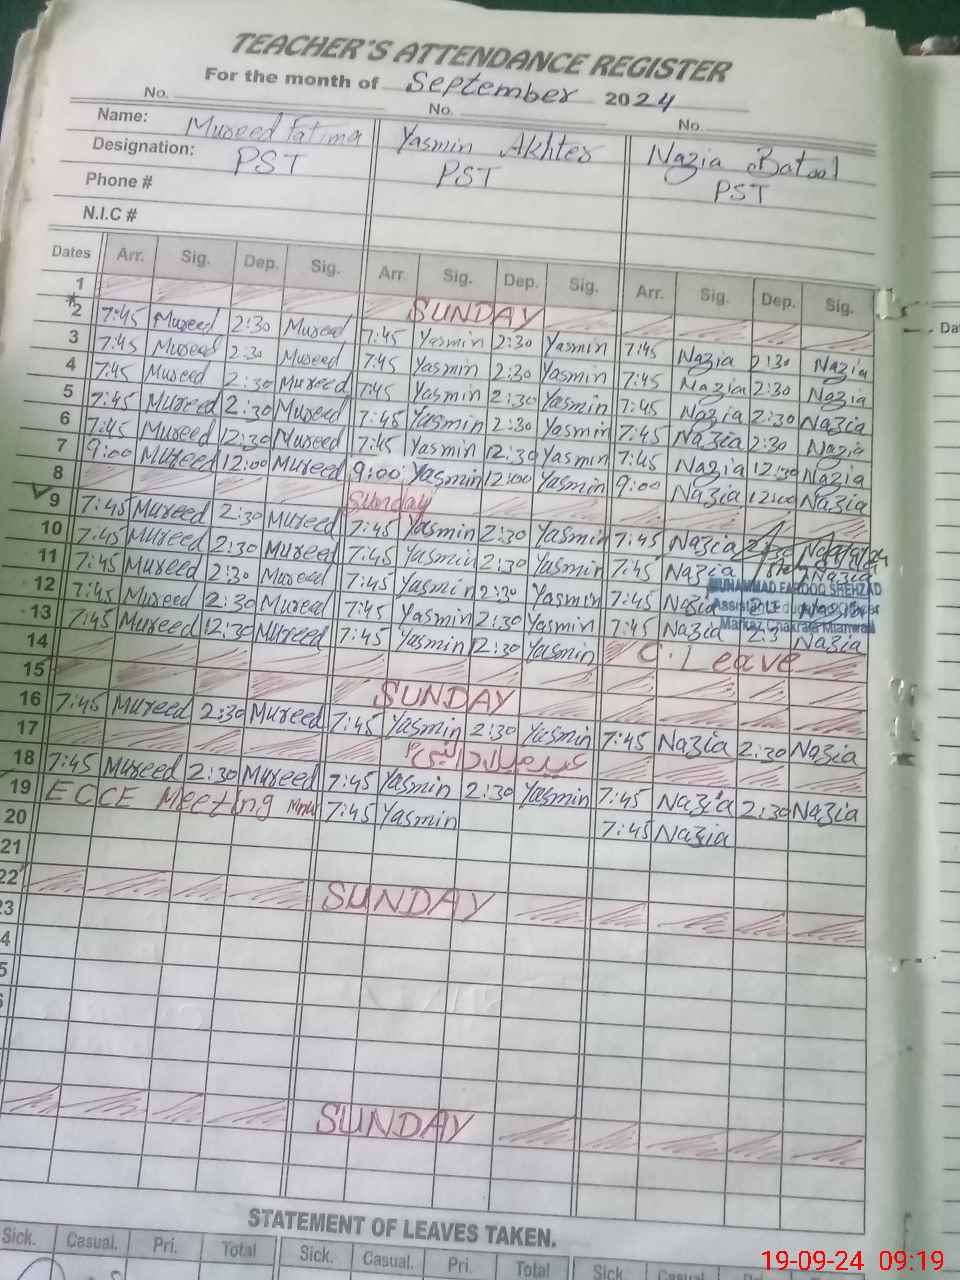 TEACHER'S ATTENDANCE REGISTER
For the month of September 2024
No. No. No.
Name: Mureed Fatima Yasmin Akhter Nazia Batool
Designation: PST PST PST
Phone #
N.I.C #
Dates Arr. Sig. Dep. Sig. Arr. Sig. Dep. Sig. Arr. Sig. Dep. Sig.
1 SUNDAY
2 7:45 Mureed 2:30 Mureed 7:45 Yasmin 2:30 Yasmin 7:45 Nazia 2:30 Nazia
3 7:45 Mureed 2:30 Mureed 7:45 Yasmin 2:30 Yasmin 7:45 Nazia 2:30 Nazia
4 7:45 Mureed 2:30 Mureed 7:45 Yasmin 2:30 Yasmin 7:45 Nazia 2:30 Nazia
5 7:45 Mureed 2:30 Mureed 7:45 Yasmin 2:30 Yasmin 7:45 Nazia 2:30 Nazia
6 7:45 Mureed 12:30 Mureed 7:45 Yasmin 12:30 Yasmin 7:45 Nazia 12:30 Nazia
7 9:00 Mureed 12:00 Mureed 9:00 Yasmin 12:00 Yasmin 9:00 Nazia 12:00 Nazia
8 Sunday
9 7:45 Mureed 2:30 Mureed 7:45 Yasmin 2:30 Yasmin 7:45 Nazia
10 7:45 Mureed 2:30 Mureed 7:45 Yasmin 2:30 Yasmin 7:45 Nazia Nazia
11 7:45 Mureed 2:30 Mureed 7:45 Yasmin 2:30 Yasmin 7:45 Nazia
12 7:45 Mureed 2:30 Mureed 7:45 Yasmin 2:30 Yasmin 7:45 Nazia Nazia
13 7:45 Mureed 12:30 Mureed 7:45 Yasmin 12:30 Yasmin C. Leave
MUHAMMAD FAROOQ SHEHZAD
Markaz Chakrala Mianwali
14
15 SUNDAY
16 7:45 Mureed 2:30 Mureed 7:45 Yasmin 2:30 Yasmin 7:45 Nazia 2:30 Nazia
17 عید میلادالنبیؐ
18 7:45 Mureed 2:30 Mureed 7:45 Yasmin 2:30 Yasmin 7:45 Nazia 2:30 Nazia
19 ECCE Meeting 7:45 Yasmin 7:45 Nazia
20
21
22 SUNDAY
23
4
5
SUNDAY
STATEMENT OF LEAVES TAKEN.
Sick. Casual. Pri. Total Sick. Casual. Pri. Total Sick.
19-09-24 09:19